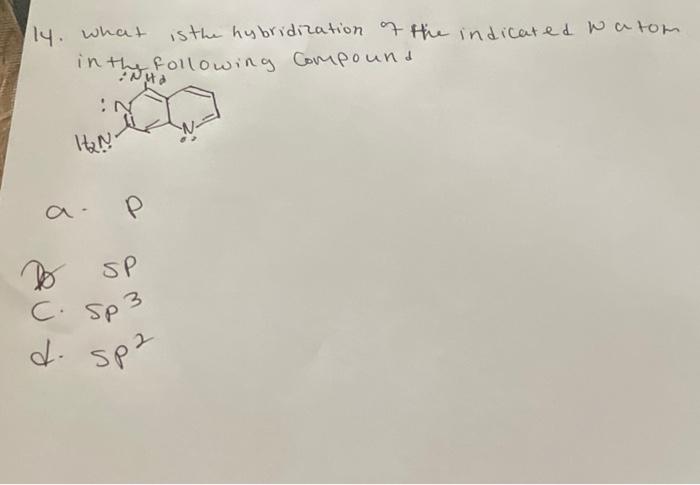 14. what isthe hybridization of the indicated N atom
in the following Compound
:NH2
:N
H2N:
N
a. p
b sp
c. sp3
d. sp2